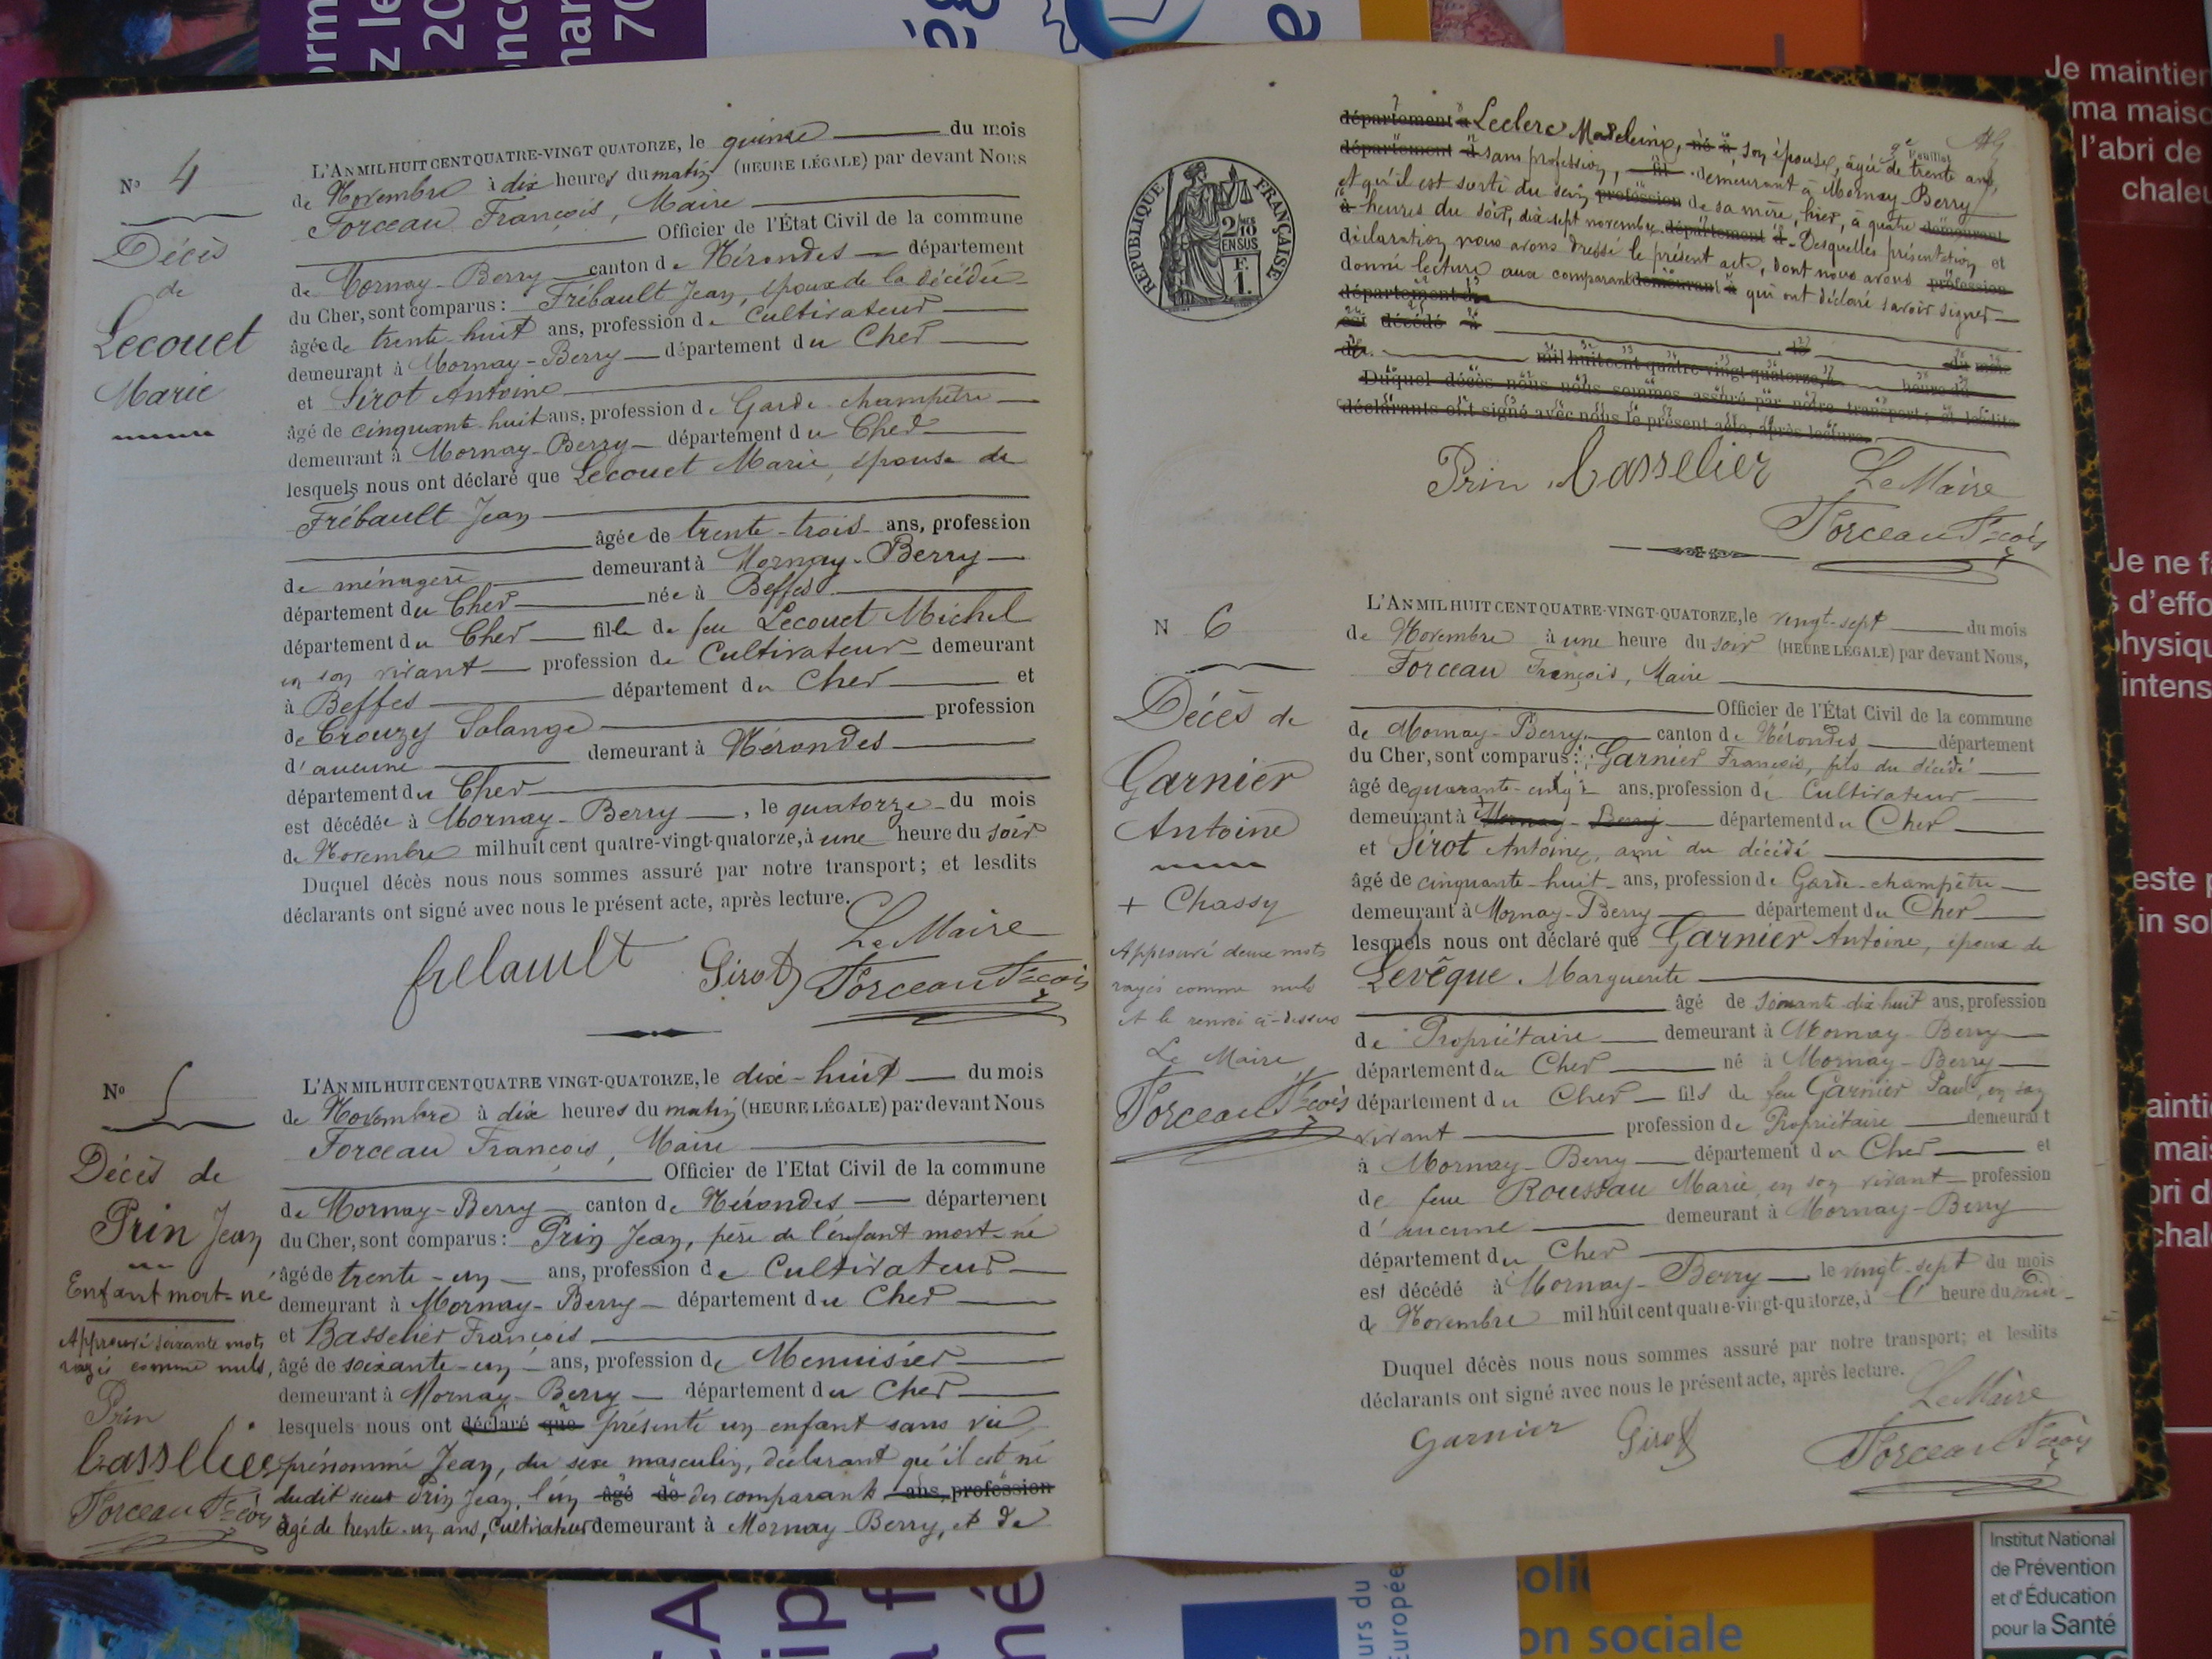 N° 4
Décès
de
Lecouet
Marie
L'AN MIL HUIT CENT QUATRE-VINGT QUATORZE, le quinze du mois
de Novembre à dix heures du matin (HEURE LÉGALE) par devant Nous
Forceau François, Maire
Officier de l'État Civil de la commune
de Mornay-Berry canton de Nérondes département
du Cher, sont comparus : Frébault Jean, époux de la décédée
âgé de trente-huit ans, profession de Cultivateur
demeurant à Mornay-Berry département du Cher
et Sirot Antoine
âgé de cinquante-huit ans, profession de Garde-champêtre
demeurant à Mornay-Berry département du Cher
lesquels nous ont déclaré que Lecouet Marie, épouse de
Frébault Jean
âgée de trente-trois ans, profession
de ménagère demeurant à Mornay-Berry
département du Cher née à Beffes
département du Cher fille de feu Lecouet Michel
en son vivant profession de Cultivateur demeurant
à Beffes département du Cher et
de Crouzy Solange profession
d'aucune demeurant à Nérondes
département du Cher
est décédée à Mornay-Berry, le quatorze du mois
de Novembre mil huit cent quatre-vingt-quatorze, à une heure du soir
Duquel décès nous nous sommes assuré par notre transport; et lesdits
déclarants ont signé avec nous le présent acte, après lecture.
Le Maire
frebault Sirot Forceau Fçois
N° 5
Décès de
Prin Jean
Enfant mort-né
Approuvé soixante mots
rayés comme nuls,
Prin
Basselier
Forceau Fçois
L'AN MIL HUIT CENT QUATRE VINGT-QUATORZE, le dix-huit du mois
de Novembre à dix heures du matin (HEURE LÉGALE) par devant Nous
Forceau François, Maire
Officier de l'Etat Civil de la commune
de Mornay-Berry canton de Nérondes département
du Cher, sont comparus : Prin Jean, père de l'enfant mort-né
âgé de trente-un ans, profession de Cultivateur
demeurant à Mornay-Berry département du Cher
et Basselier François
âgé de soixante-un ans, profession de Menuisier
demeurant à Mornay-Berry département du Cher
lesquels nous ont déclaré que présenté un enfant sans vie
prénommé Jean, du sexe masculin, déclarant qu'il est né
dudit sieur Prin Jean, l'un âgé de des comparants ans, profession
âgé de trente-un ans, Cultivateur demeurant à Mornay-Berry, et de
2e Feuillet
département à Leclerc Madeleine, né à, son épouse, âgée de trente ans,
département d sans profession, fil demeurant à Mornay-Berry
et qu'il est sorti du sein profession de sa mère, hier, à quatre demeurant
à heures du soir, dix-sept novembre. département d Desquelles présentation et
déclaration nous avons dressé le présent acte, dont nous avons profession
donné lecture aux comparants demeurant à qui ont déclaré savoir signer
département d
est décédé à
de du mois
mil huit cent quatre-vingt-quatorze, à heure du
Duquel décès nous nous sommes assuré par notre transport; et lesdits
déclarants ont signé avec nous le présent acte, après lecture.
Prin Basselier Le Maire
Forceau Fçois
RÉPUBLIQUE FRANÇAISE
2/10
EN SUS
F.
1.
N 6
Décès de
Garnier
Antoine
+ Chassy
Approuvé deux mots
rayés comme nuls
et le renvoi ci-dessus
Le Maire
Forceau Fçois
L'AN MIL HUIT CENT QUATRE-VINGT-QUATORZE, le vingt-sept du mois
de Novembre à une heure du soir (HEURE LÉGALE) par devant Nous,
Forceau François, Maire
Officier de l'État Civil de la commune
de Mornay-Berry canton de Nérondes département
du Cher, sont comparus : Garnier François, fils du décédé
âgé de quarante-cinq ans, profession de Cultivateur
demeurant à + Mornay-Berry département du Cher
et Sirot Antoine, ami du décédé
âgé de cinquante-huit ans, profession de Garde-champêtre
demeurant à Mornay-Berry département du Cher
lesquels nous ont déclaré que Garnier Antoine, époux de
Levêque Marguerite
âgé de soixante dix huit ans, profession
de Propriétaire demeurant à Mornay-Berry
département du Cher né à Mornay-Berry
département du Cher fils de feu Garnier Paul, en son
vivant profession de Propriétaire demeurant
à Mornay-Berry département du Cher et
de feue Rousseau Marie, en son vivant profession
d'aucune demeurant à Mornay-Berry
département du Cher
est décédé à Mornay-Berry le vingt-sept du mois
de Novembre mil huit cent quatre-vingt-quatorze, à l' heure du midi
Duquel décès nous nous sommes assuré par notre transport; et lesdits
déclarants ont signé avec nous le présent acte, après lecture.
Le Maire
Garnier Sirot Forceau Fçois
Je maintien
ma maiso
l'abri de
chaleu
Je ne f
d'effo
physiqu
intens
Institut National
de Prévention
et d'Éducation
pour la Santé
on sociale
urs du
Européen